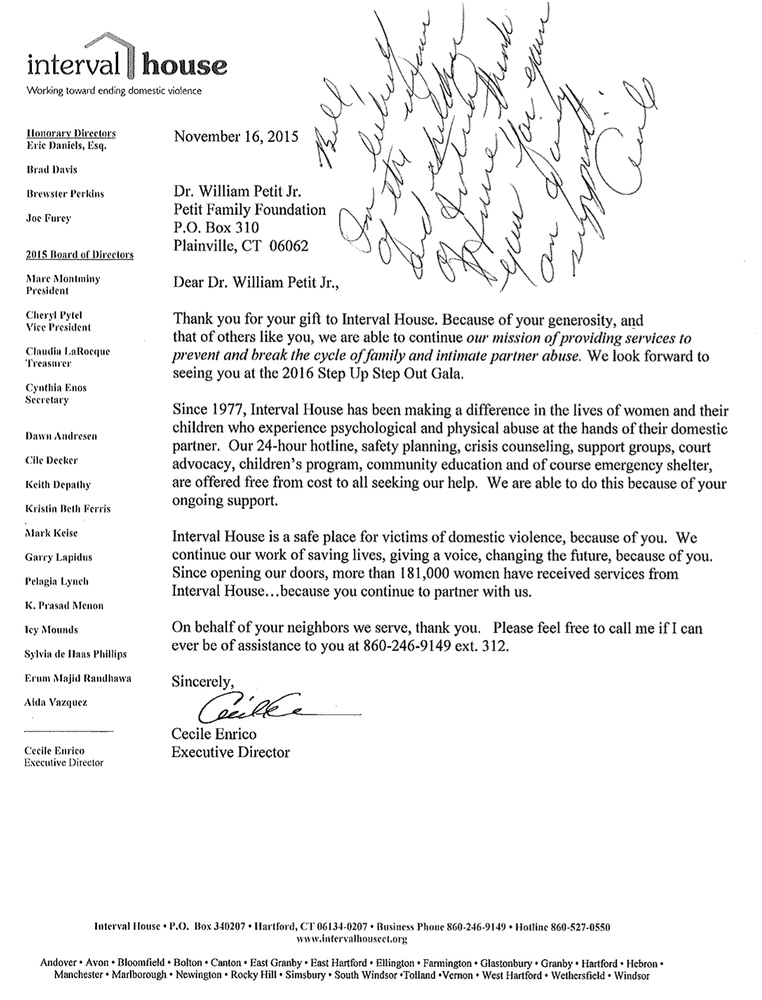 interval house
Working toward ending domestic violence
Bill,
On behalf
of the women
and children
of Interval
House thank
you for your
on going
support!
Cecile
Honorary Directors
Eric Daniels, Esq.
Brad Davis
Brewster Perkins
Joe Furey
2015 Board of Directors
Marc Montminy
President
Cheryl Pytel
Vice President
Claudia LaRocque
Treasurer
Cynthia Enos
Secretary
Dawn Andresen
Cile Decker
Keith Depathy
Kristin Beth Ferris
Mark Keise
Garry Lapidus
Pelagia Lynch
K. Prasad Menon
Icy Mounds
Sylvia de Haas Phillips
Erum Majid Randhawa
Aida Vazquez
Cecile Enrico
Executive Director
November 16, 2015
Dr. William Petit Jr.
Petit Family Foundation
P.O. Box 310
Plainville, CT 06062
Dear Dr. William Petit Jr.,
Thank you for your gift to Interval House. Because of your generosity, and
that of others like you, we are able to continue our mission of providing services to
prevent and break the cycle of family and intimate partner abuse. We look forward to
seeing you at the 2016 Step Up Step Out Gala.
Since 1977, Interval House has been making a difference in the lives of women and their
children who experience psychological and physical abuse at the hands of their domestic
partner. Our 24-hour hotline, safety planning, crisis counseling, support groups, court
advocacy, children's program, community education and of course emergency shelter,
are offered free from cost to all seeking our help. We are able to do this because of your
ongoing support.
Interval House is a safe place for victims of domestic violence, because of you. We
continue our work of saving lives, giving a voice, changing the future, because of you.
Since opening our doors, more than 181,000 women have received services from
Interval House…because you continue to partner with us.
On behalf of your neighbors we serve, thank you. Please feel free to call me if I can
ever be of assistance to you at 860-246-9149 ext. 312.
Sincerely,
Cecile Enrico
Executive Director
Interval House • P.O. Box 340207 • Hartford, CT 06134-0207 • Business Phone 860-246-9149 • Hotline 860-527-0550
www.intervalhousect.org
Andover • Avon • Bloomfield • Bolton • Canton • East Granby • East Hartford • Ellington • Farmington • Glastonbury • Granby • Hartford • Hebron •
Manchester • Marlborough • Newington • Rocky Hill • Simsbury • South Windsor •Tolland •Vernon • West Hartford • Wethersfield • Windsor